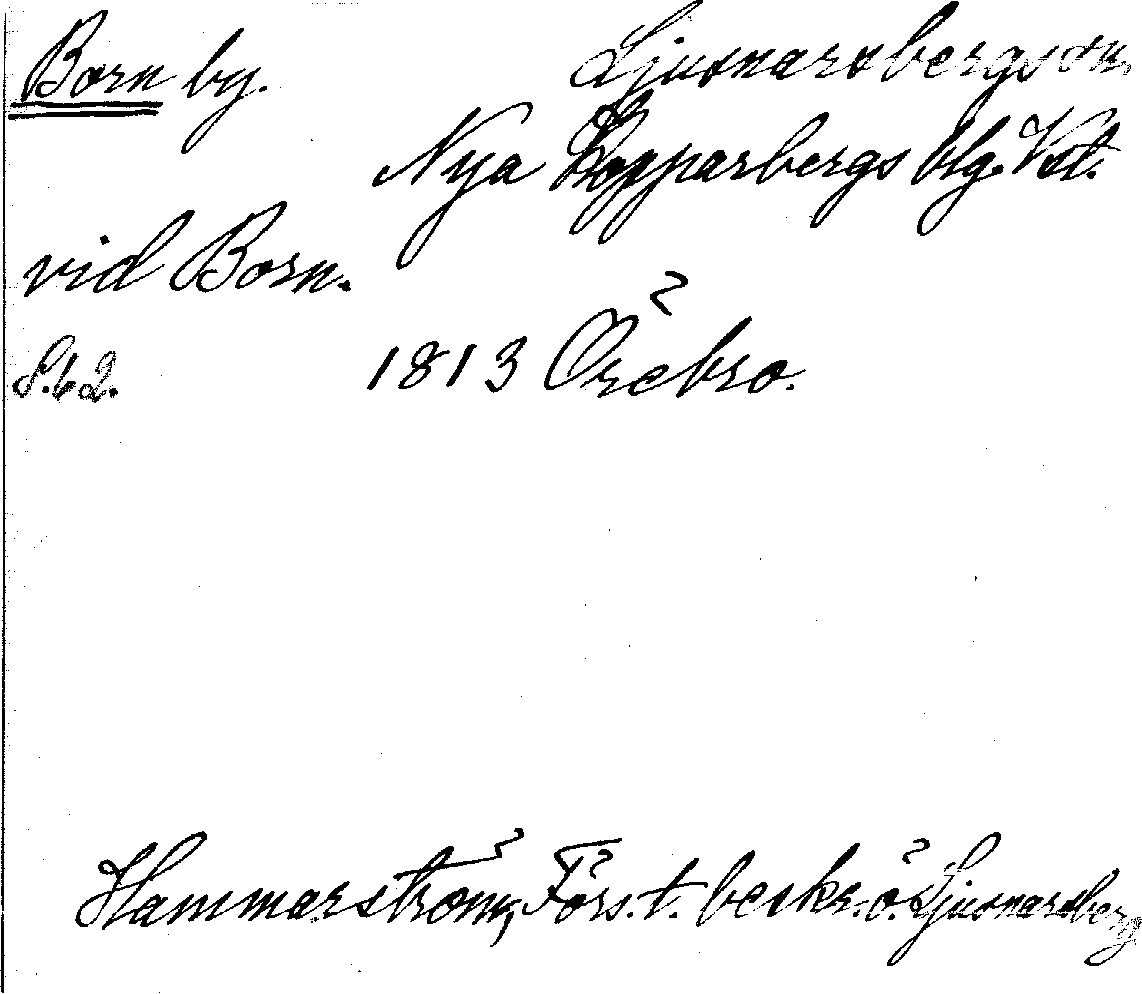 Born by. Ljusnarsbergs sn.
Nya Kopparbergs blg. Vstl.
vid Born.
S. 62. 1813 Örebro.
Hammarström, Förs. t. beskr. ö. Ljusnarsberg